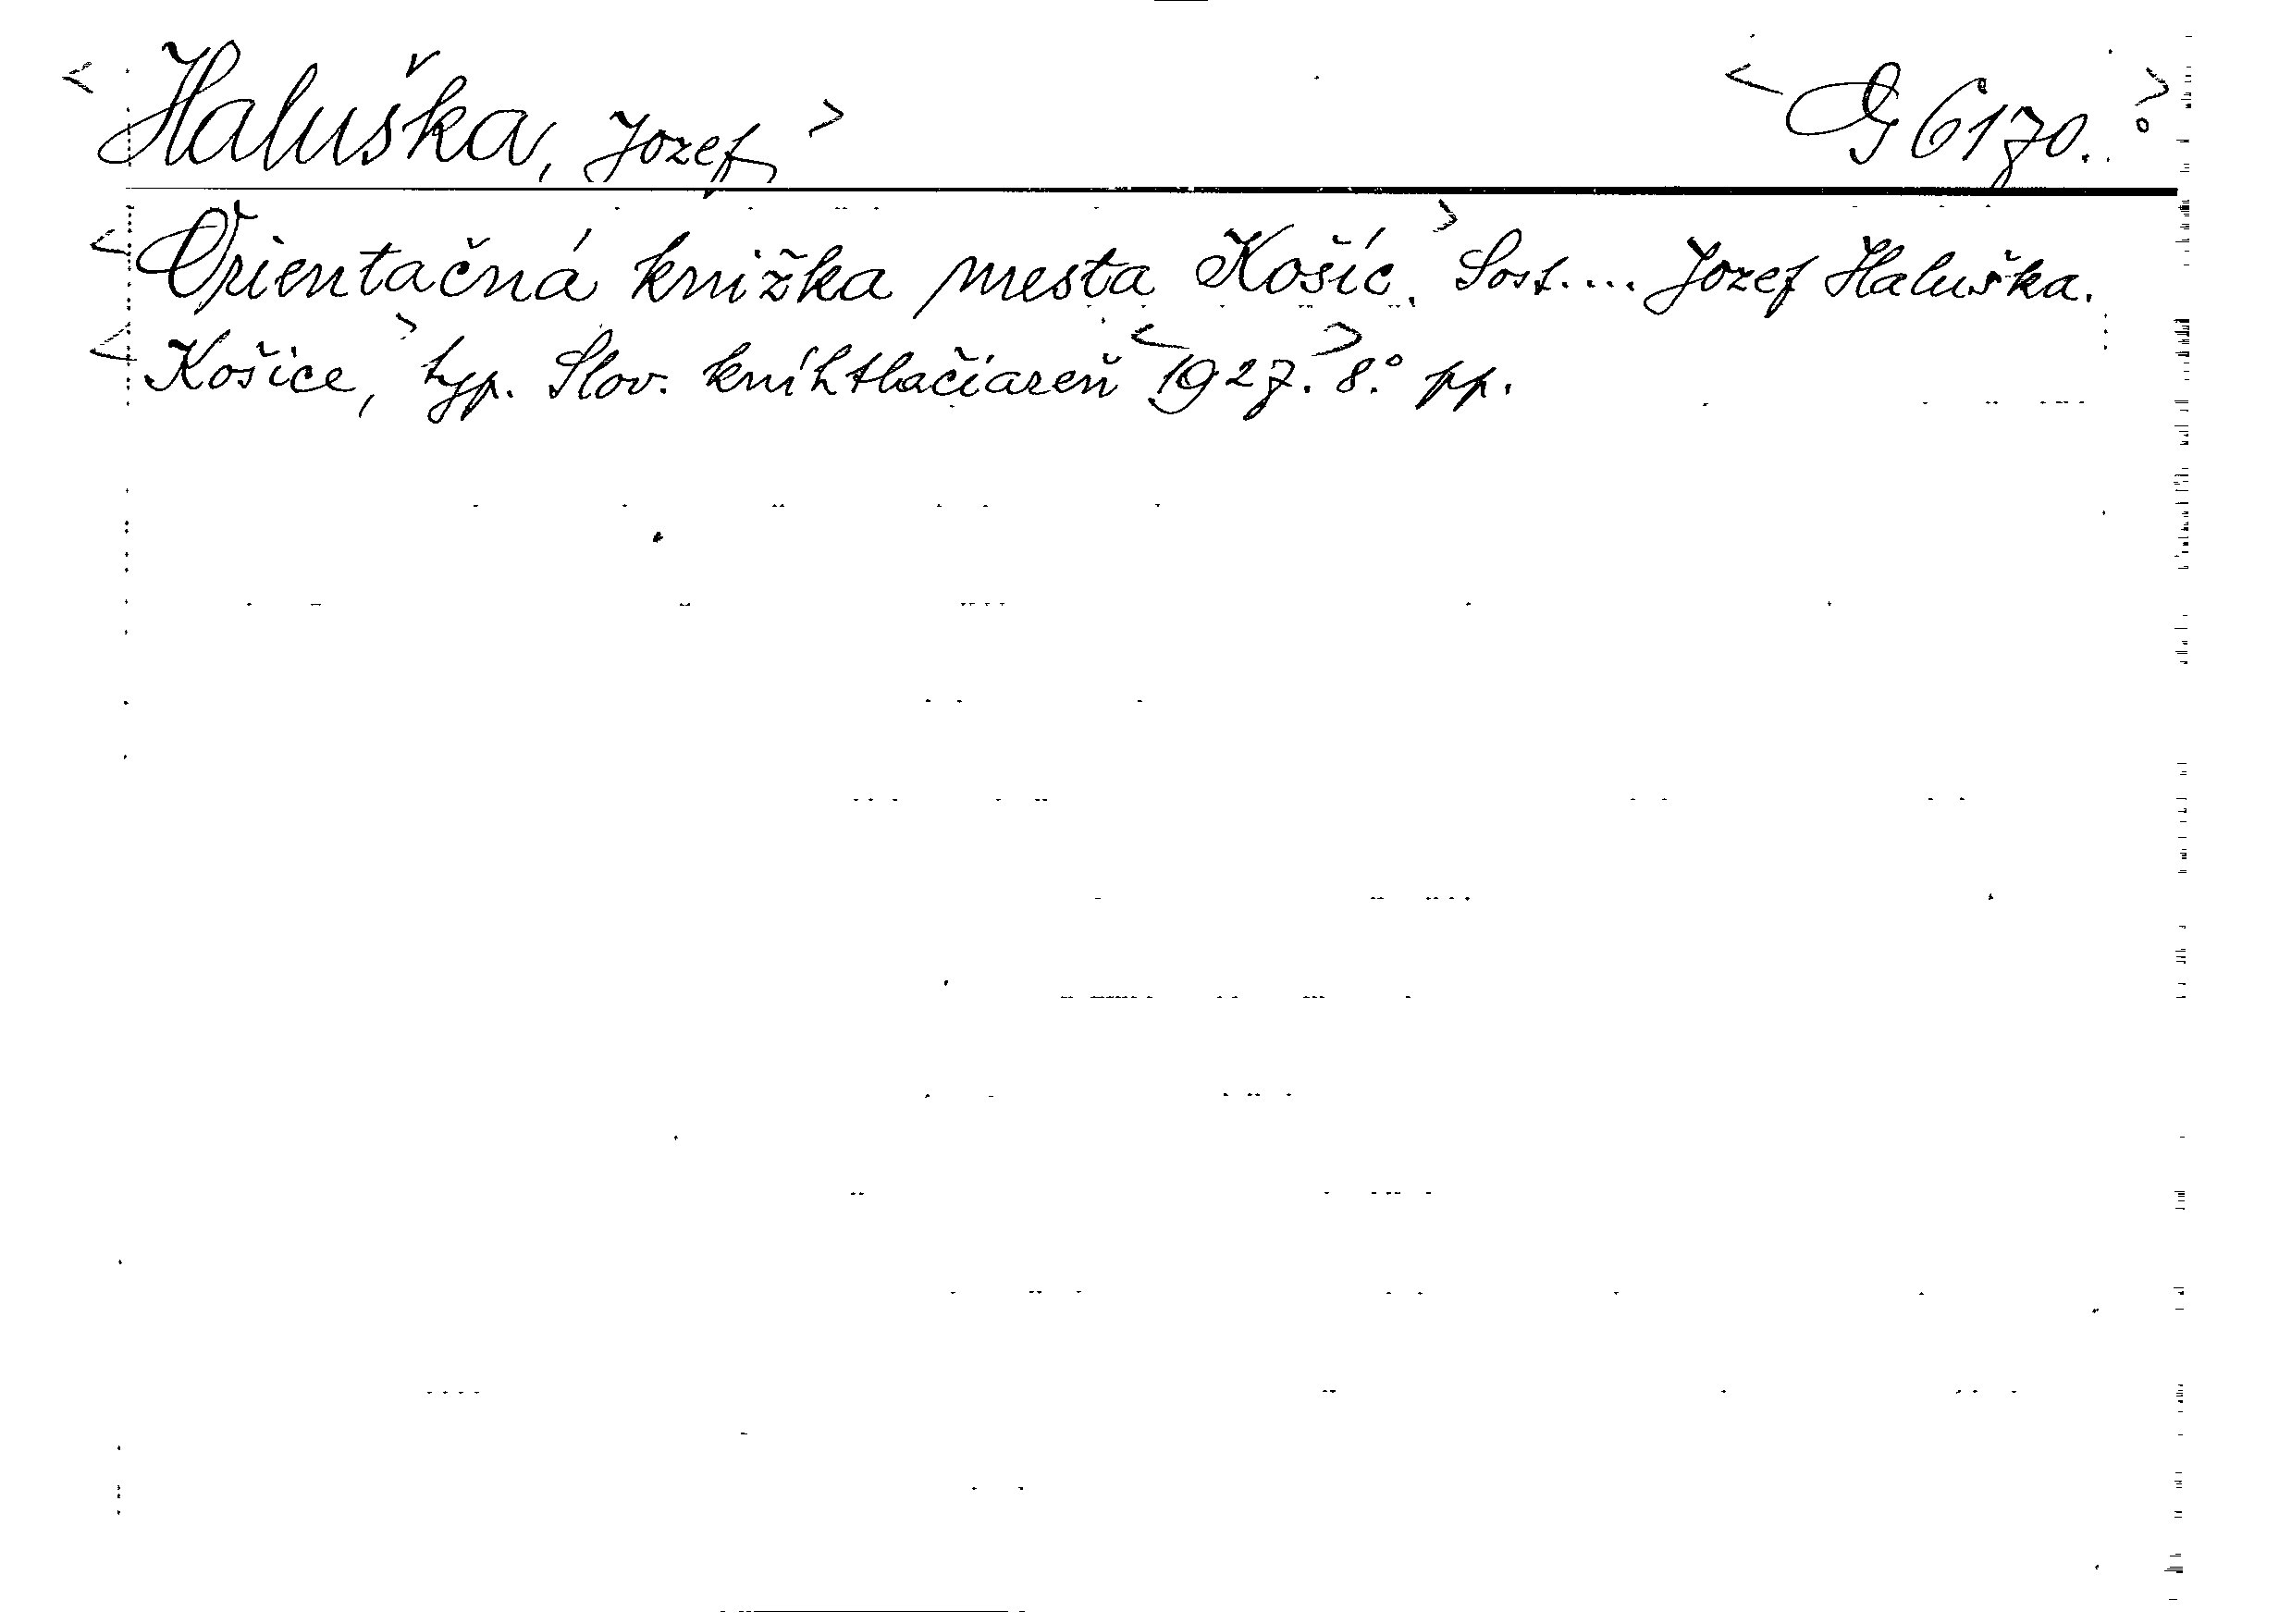 <Haluška, Jozef> <G 6170.>
<Orientačná knižka mesta Košíc.> Sost.... Jozef Haluška.
<Košice,> typ. Slov. kníhtlačiareň <1927.> 8.° pp.